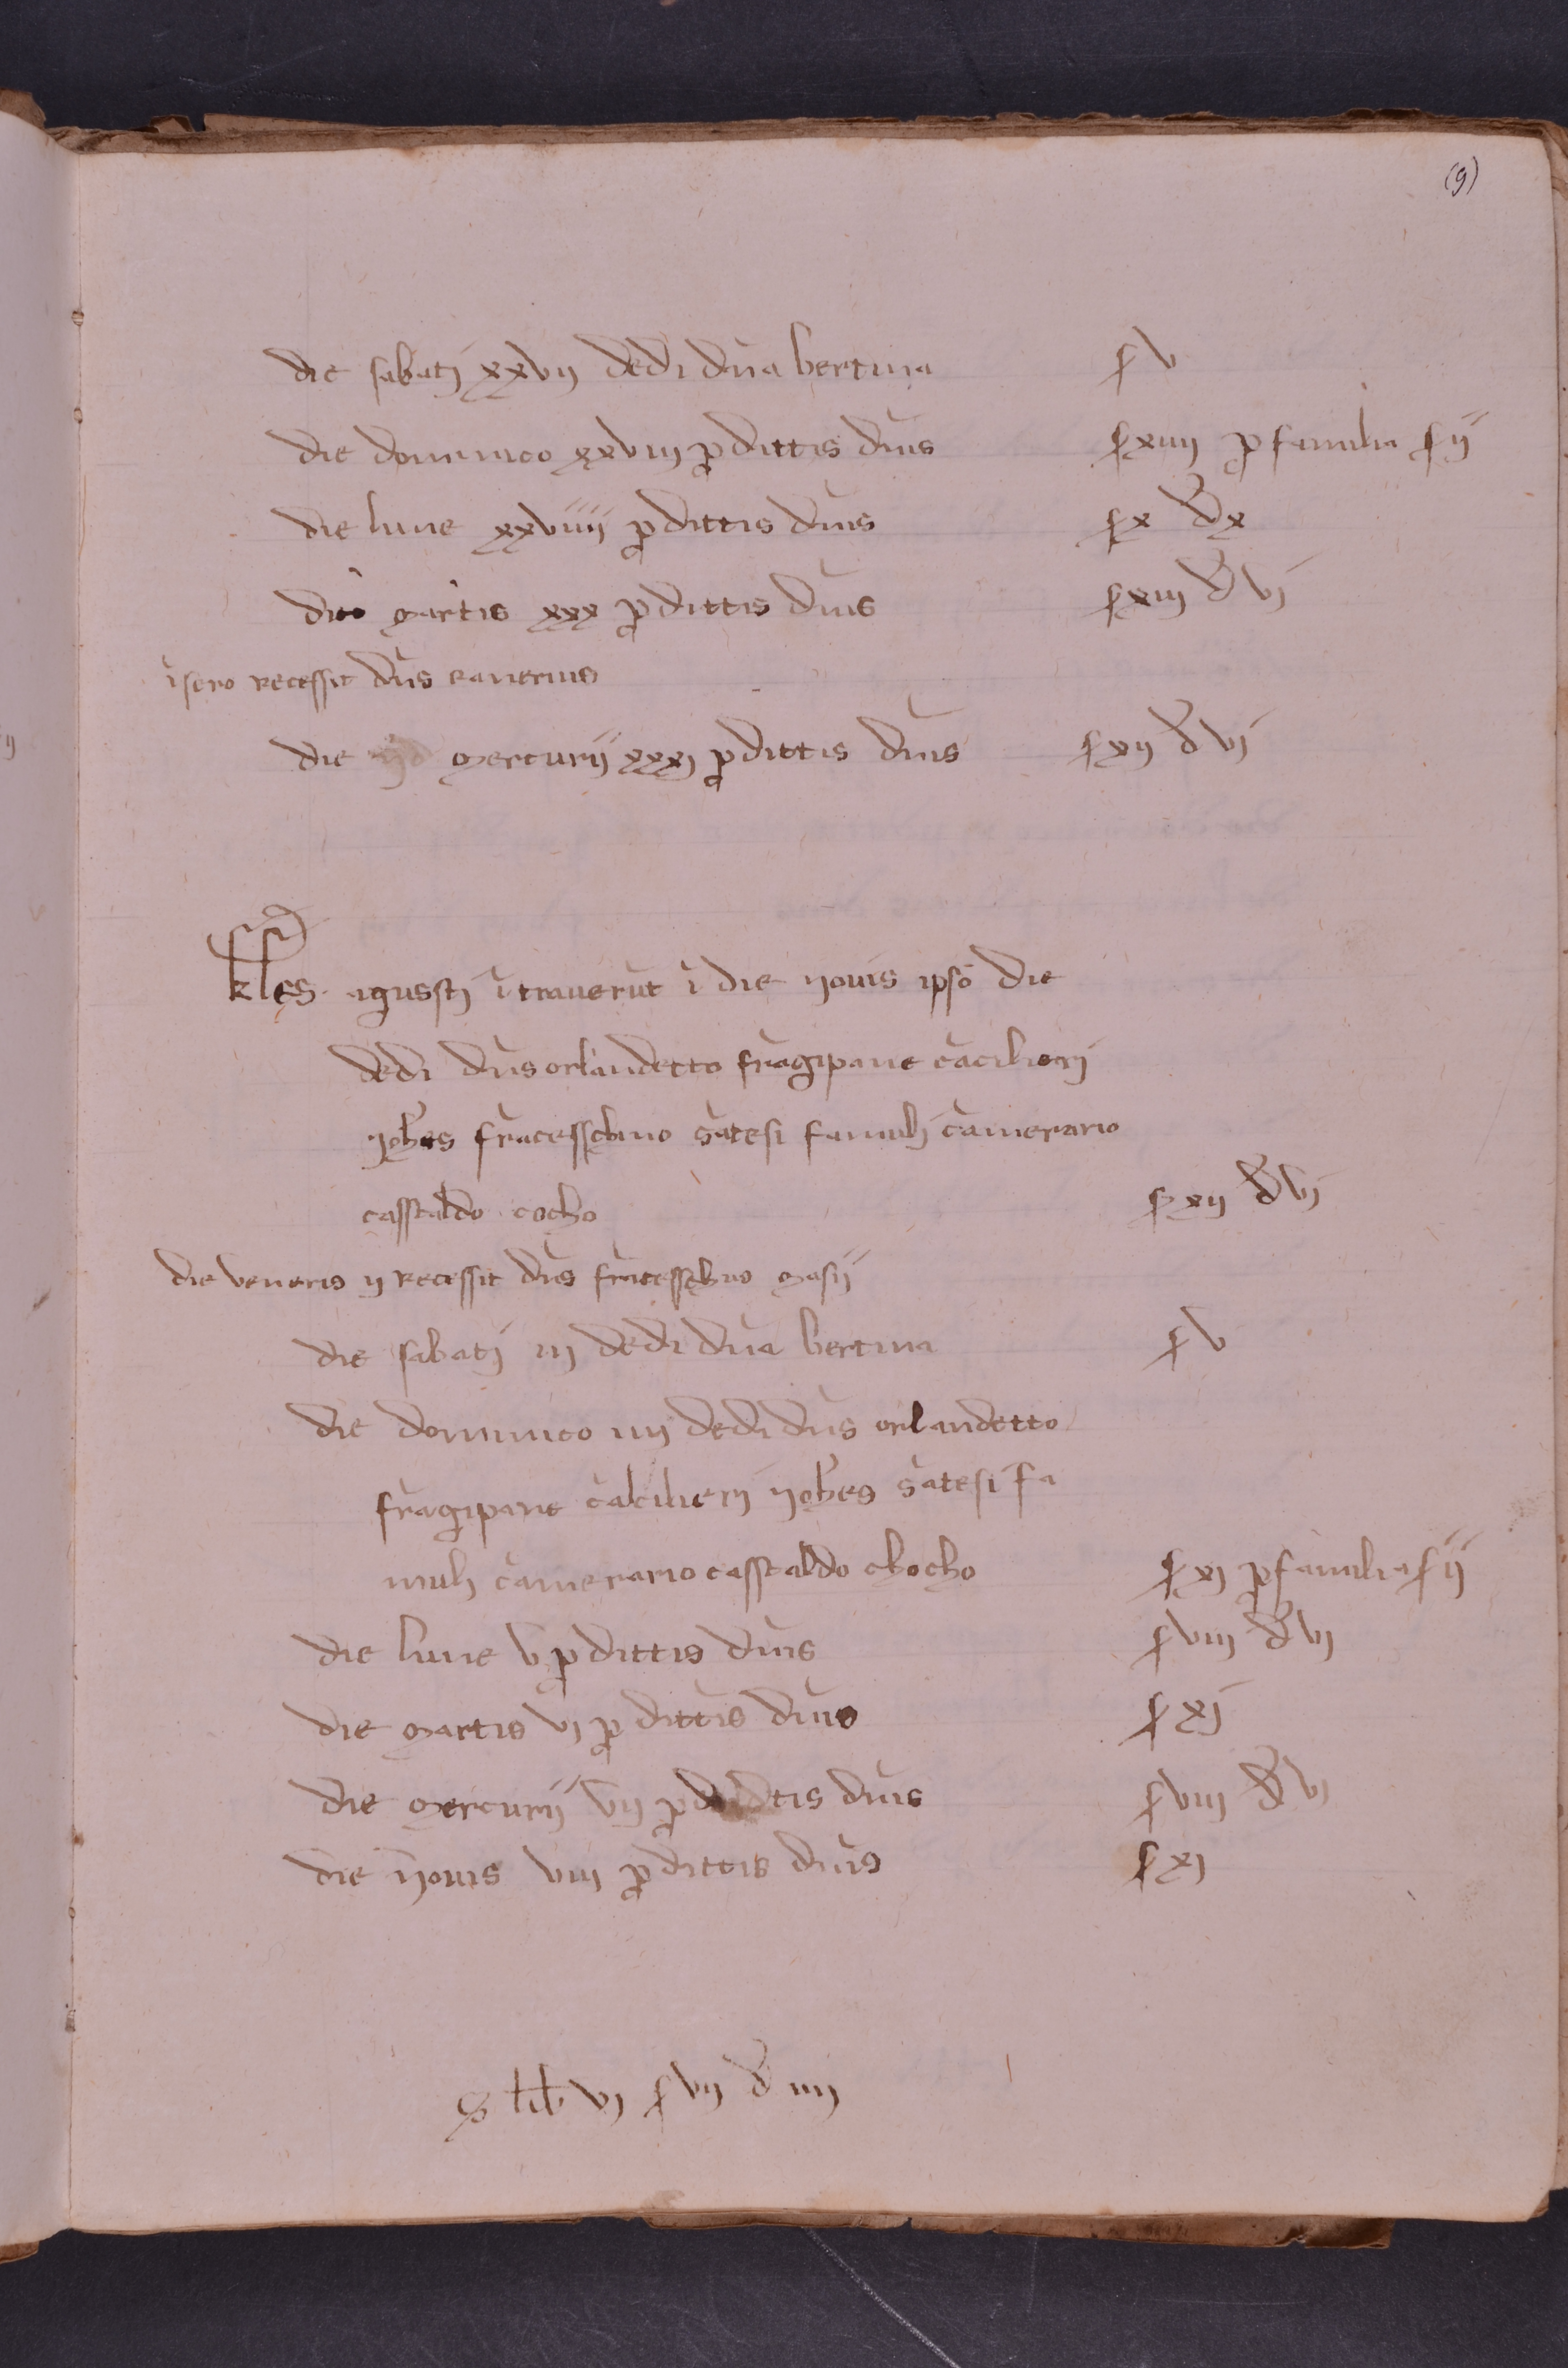 (9)
die sabatj xxvij dedi dn̄a bertina s v
die dominico xxviij ꝑ dittis dn̄is s xiiij ꝑ familia s ij
die lune xxviiij ꝑ dittis dn̄is s x d x
die martis xxx ꝑ dittis dn̄is s xiij d vj
ī sero recessit dn̄s ranerius
die mercurij xxxj ꝑ dittis dn̄is s xij d vj
kl̄es agusstj ītraverūt ī die iovis ipso die
dedi dn̄s orlandetto frāgipane cācilierj
ioh̄es frācesschino sātesi famulj camerario
casstaldo cocho s xij d vj
die veneris ij recessit dn̄s frācesschino masij
die sabatj iij dedi dn̄a bertina s v
die dominico iiij dedi dn̄s orlandetto
frāgipane cālcilierj ioh̄es sātesi fa
mulj camerario casstaldo chocho s xj ꝑ familia s ij
die lune v ꝑ dittis dn̄is s viij d vj
die martis vj ꝑ dittis dn̄is s xj
die mercurij vij ꝑ dittis dn̄is s viij d vj
die iovis viij ꝑ dittis dn̄is s xj
S lib vj s vij d iiij